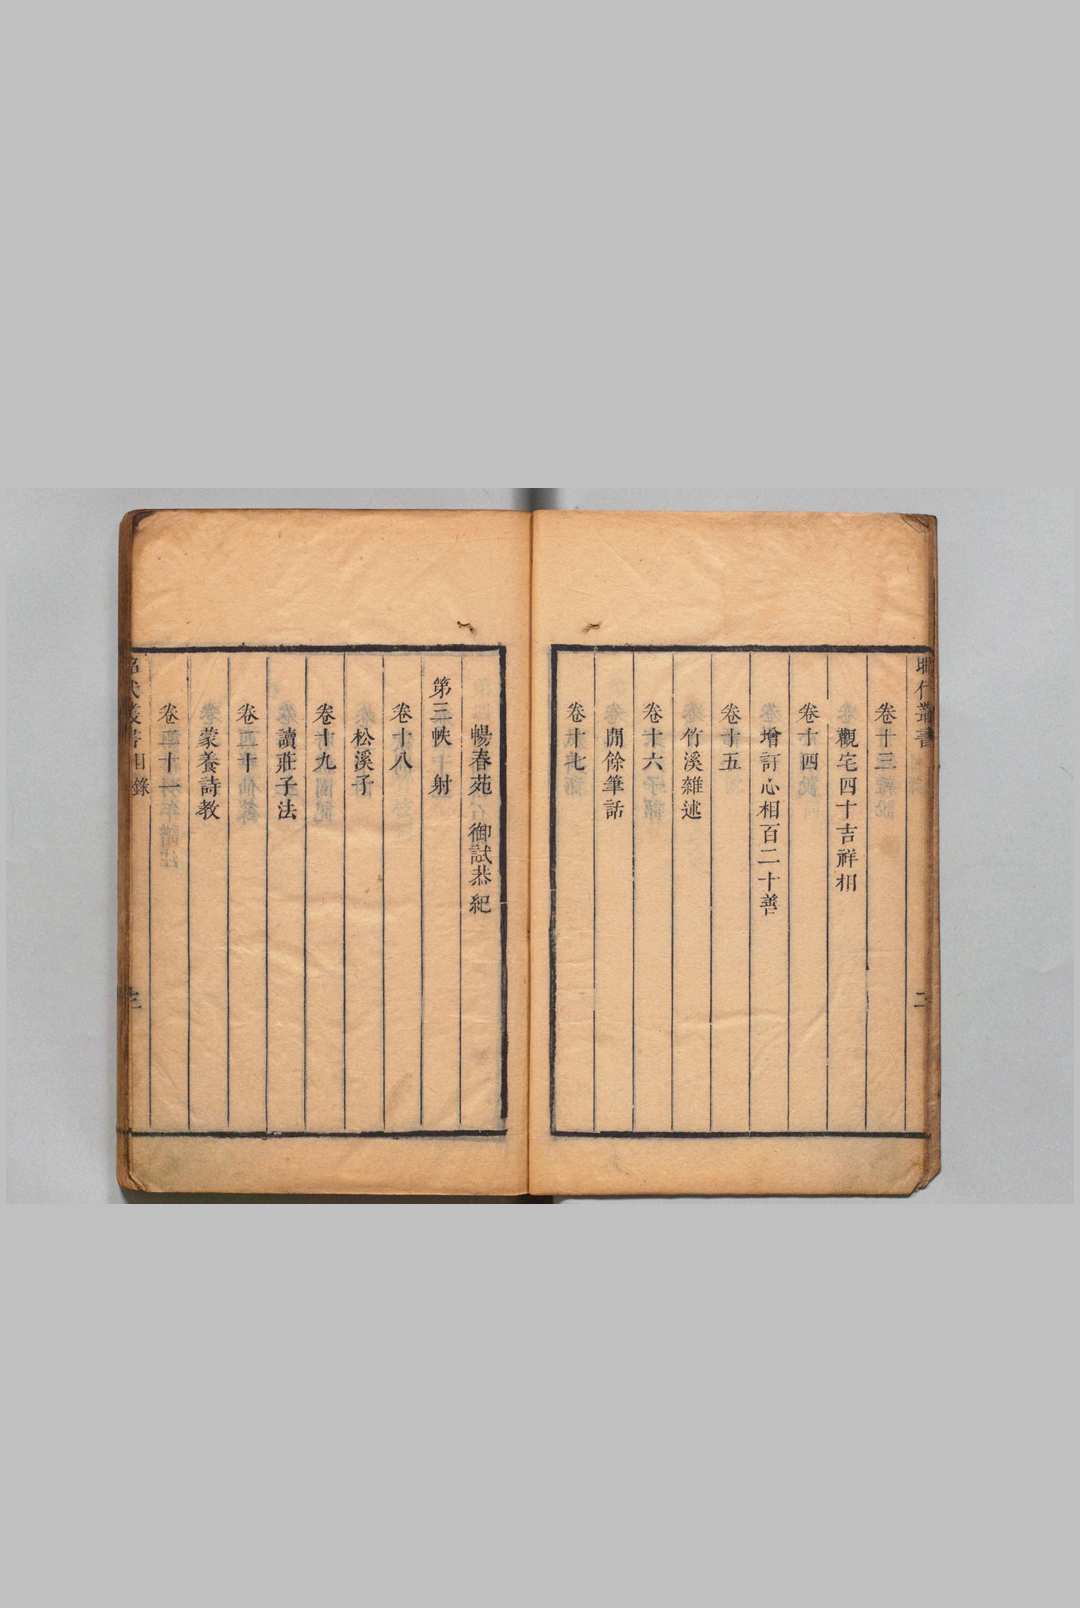 昭代叢書
二
卷十三
觀宅四十吉祥相
卷十四
增訂心相百二十善
卷十五
竹溪雜述
卷十六
閒餘筆話
卷十七
暢春苑 御試恭紀
第三帙 射
卷十八
松溪子
卷十九
讀莊子法
卷二十
蒙養詩教
卷二十一
昭代叢書目錄
三